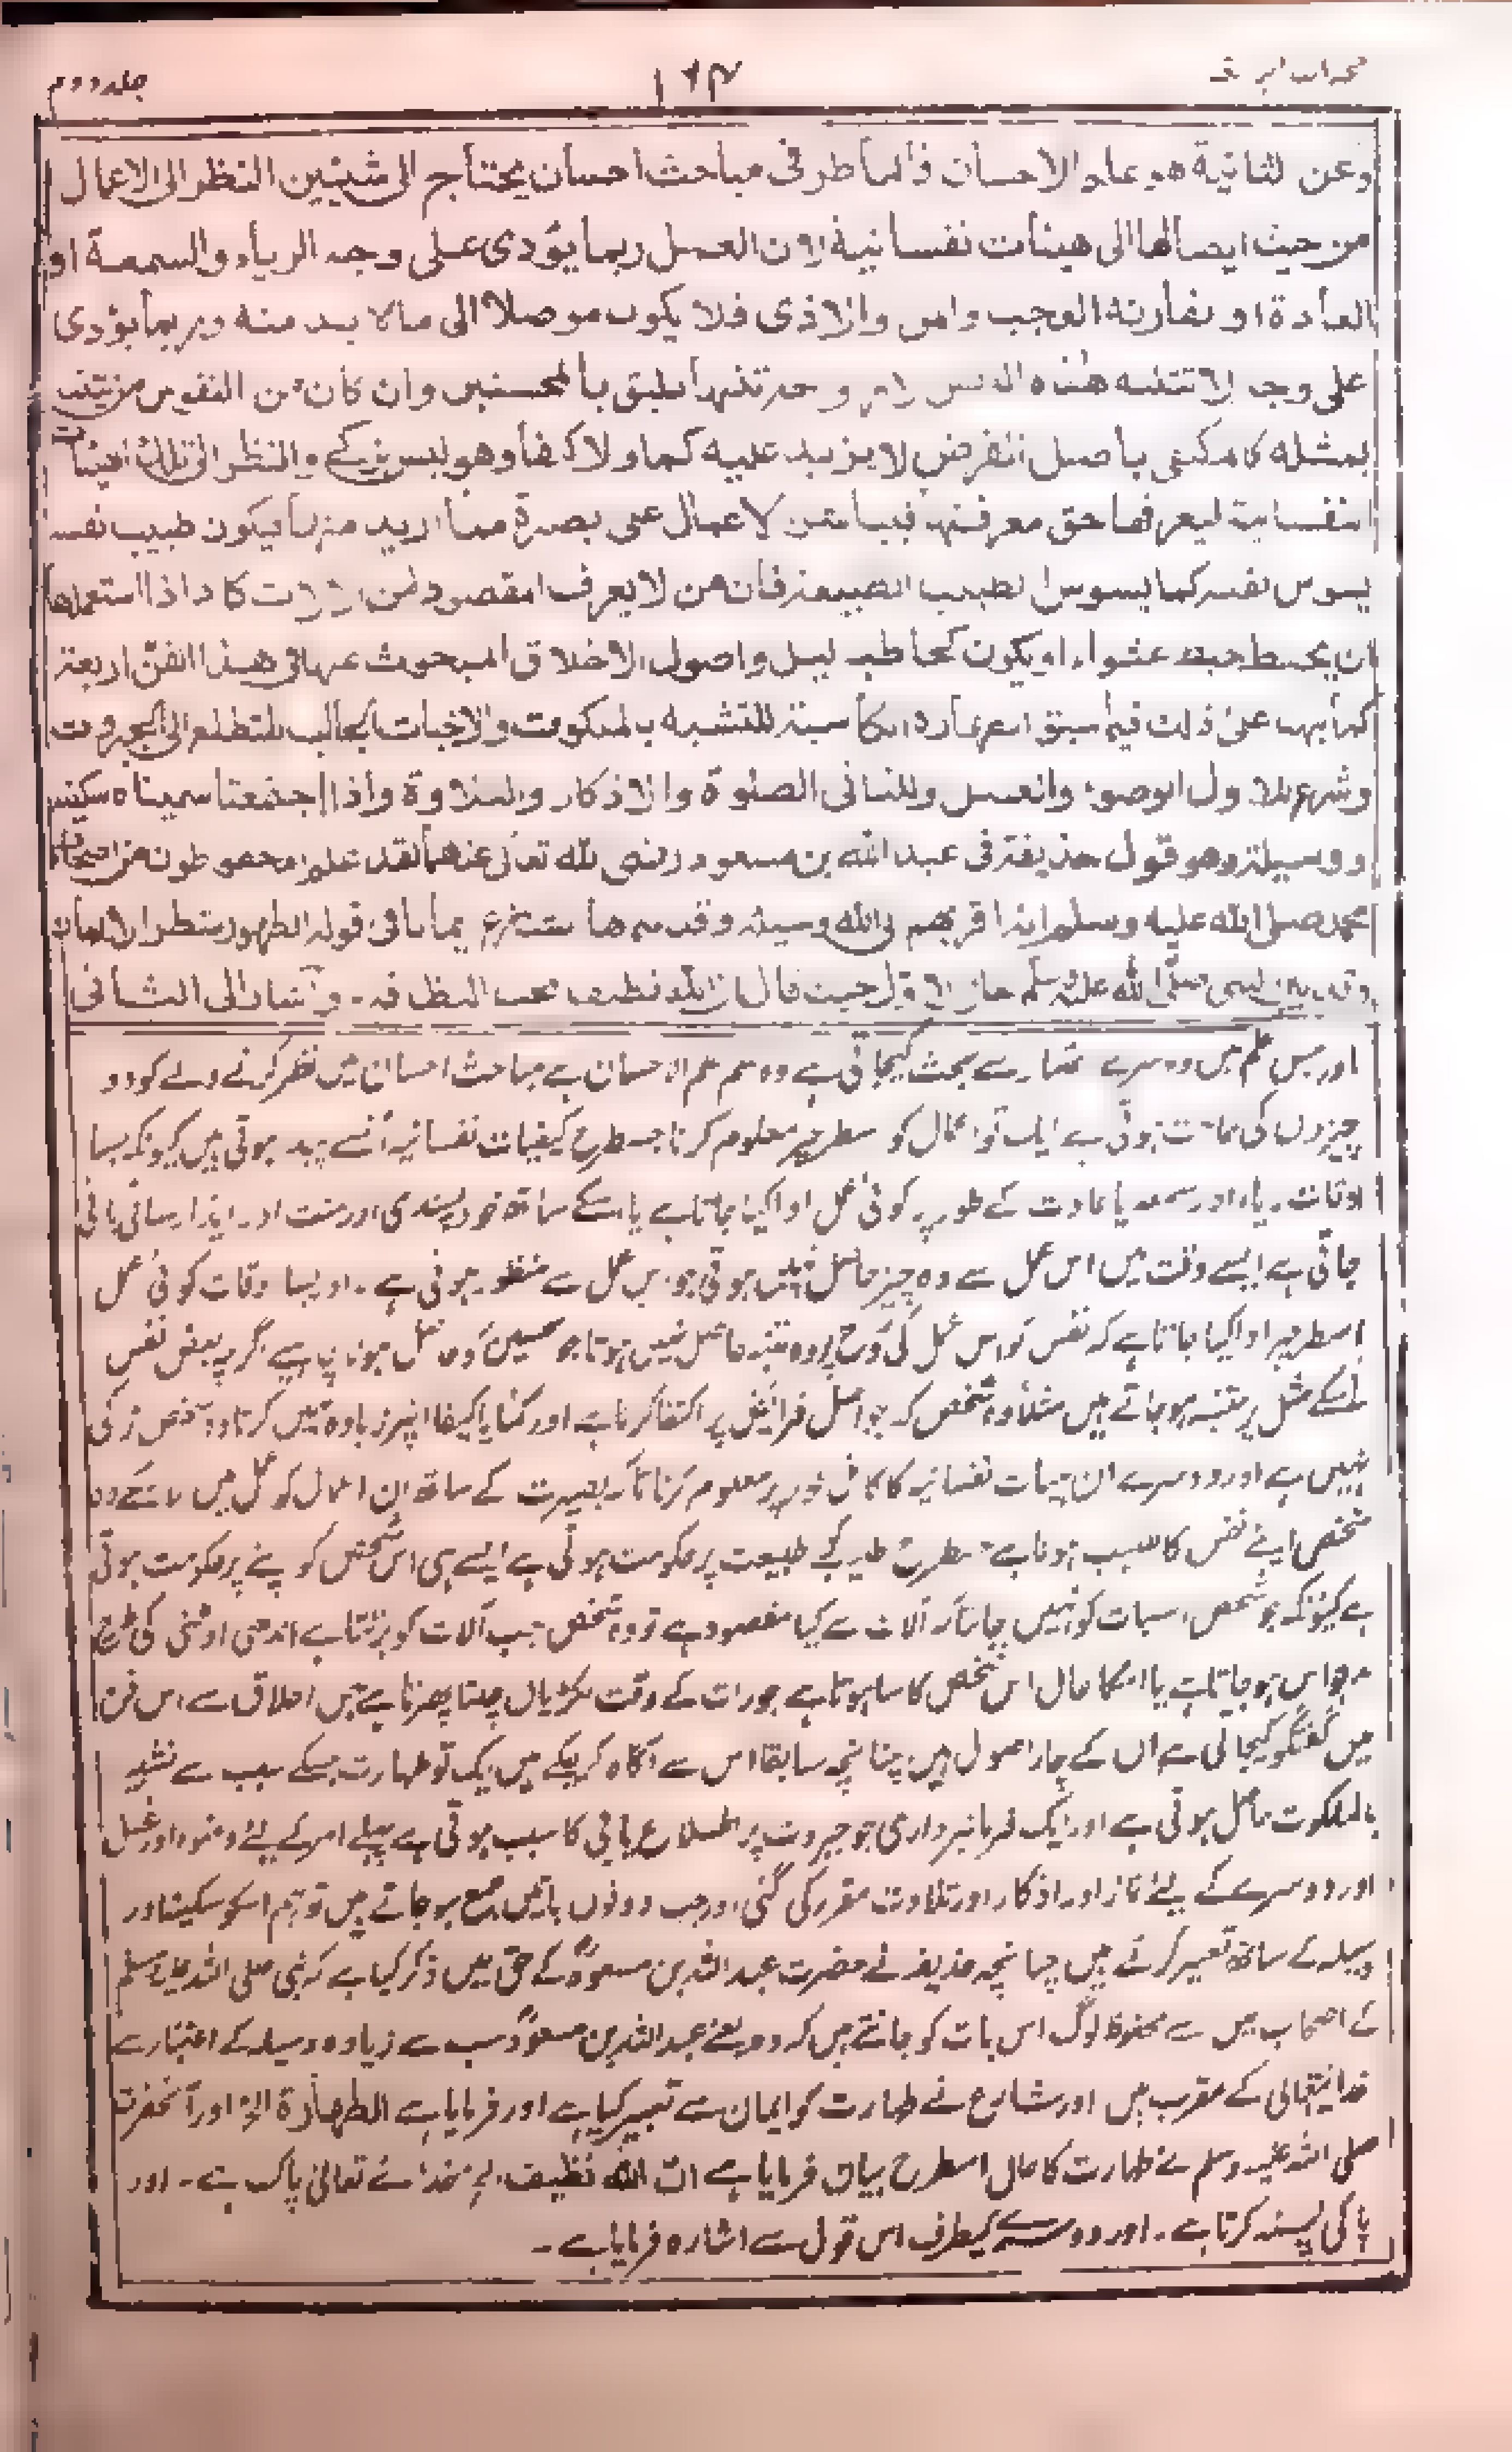 جلد دوم
۱۶۴
وعن الثانية هو علم الاحسان فالناظر فى مباحث احسان يحتاج الى شيئين النظر الى الاعمال
من حيث ايصالها الى هيئات نفسانية لان العمل ربما يؤدى على وجه الرياء والسمعة او
العادة او يقارنه العجب والمن والاذى فلا يكون موصلا الى ما لا بد منه وربما يؤدى
على وجه لا تتنبه هذه النفس تنبها يليق بالمحسنين وان كان من النفوس من يتنبه
بمثله كالمكتفى باصل الفرض لا يزيد عليه كما ولا كيفا وهو ليس بزكى والنظر الى تلك الهيئات
النفسانية ليعرفها حق معرفتها فيباشر الاعمال على بصيرة مما اريد منها فيكون طبيب نفسه
يسوس نفسه كما يسوس الطبيب الطبيعة فان من لا يعرف المقصود من الالات كاد اذا استعملها
ان يخبط خبط عشواء او يكون كحاطب ليل واصول الاخلاق المبحوث عنها فى هذا الفن اربعة
كما نبهنا على ذلك فيما سبق الطهارة الكاسبة للتشبه بالملكوت والاخبات الجالب للتطلع الى الجبروت
وشرع للاول الوضوء والغسل وللثانى الصلوة والاذكار والتلاوة واذا اجتمعتا سميناه سكينة
ووسيلة وهو قول حذيفة فى عبد الله بن مسعود رضى الله تعالى عنهما لقد علم المحفوظون من اصحاب
محمد صلى الله عليه وسلم انه اقربهم الى الله وسيلة وقد سماها الشارع ايمانا فى قوله الطهور شطر الايمان
وقد بين النبى صلى الله عليه وسلم حال الاول حيث قال ان الله نظيف يحب النظافة - واشار الى الثانى
اور جس علم میں دوسرے اعتبار سے بحث کیجاتی ہے وہ علم الاحسان ہے مباحث احسان میں نظر کرنے والے کو دو
چیزوں کی حاجت ہوتی ہے ایک تو اعمال کو اسطرح پر معلوم کرنا جسطرح کیفیات نفسانیہ اُنسے پیدا ہوتی ہیں کیونکہ بسا
اوقات ریاء اور سمعہ یا عادت کے طور پر کوئی عمل ادا کیا جاتا ہے یا اسکے ساتھ خود پسندی اور منت اور ایذا رسانی پائی
جاتی ہے ایسے وقت میں اس عمل سے وہ چیز حاصل نہیں ہوتی جو اس عمل سے منظور ہوتی ہے - اور بسا اوقات کوئی عمل
اسطرح پر ادا کیا جاتا ہے کہ نفس کو اس عمل کی روح پر وہ تنبہ حاصل نہیں ہوتا جو محسنین کو حاصل ہونا چاہیے اگرچہ بعض نفس
اسکے مثل پر متنبہ ہو جاتے ہیں مثلاً وہ شخص کہ جو اصل فرائض پر اکتفا کرتا ہے اور کمًا یا کیفًا اسپر زیادہ نہیں کرتا وہ شخص زکی
نہیں ہے اور دوسرے ان ہیئات نفسانیہ کا کامل طور پر معلوم کرنا تاکہ بصیرت کے ساتھ ان اعمال کو عمل میں لا سکے وہ
شخص اپنے نفس کا طبیب ہوتا ہے جسطرح طبیب کی طبیعت پر حکومت ہوتی ہے ایسے ہی اس شخص کو اپنے پر حکومت ہوتی
ہے کیونکہ جو شخص اسبات کو نہیں جانتا کہ آلات سے کیا مقصود ہے تو وہ شخص جب آلات کو برتتا ہے اندھی اونٹنی کی طرح
بدحواس ہو جاتا ہے یا اسکا حال اس شخص کا سا ہوتا ہے جو رات کے وقت لکڑیاں چنتا پھرتا ہے جن اخلاق سے اس فن
میں گفتگو کیجاتی ہے اُن کے چار اصول ہیں چنانچہ سابقا اس سے آگاہ کر چکے ہیں ایک تو طہارت جسکے سبب سے تشبہ
بالملکوت حاصل ہوتی ہے اور ایک فرمانبرداری جو جبروت پر اطلاع یابی کا سبب ہوتی ہے پہلے امر کے لیئے وضو اور غسل
اور دوسرے کے لیئے نماز اور اذکار اور تلاوت مقرر کی گئی اور جب دونوں باتیں جمع ہو جاتے ہیں تو ہم اسکو سکینہ اور
وسیلہ کے ساتھ تعبیر کرتے ہیں چنانچہ حذیفہ نے حضرت عبد اللہ بن مسعودؓ کے حق میں ذکر کیا ہے کہ نبی صلی اللہ علیہ وسلم
کے اصحاب میں سے محفوظ لوگ اس بات کو جانتے ہیں کہ وہ یعنے عبد اللہ بن مسعودؓ سب سے زیادہ وسیلہ کے اعتبار سے
خدایتعالی کے مقرب ہیں اور شارع نے طہارت کو ایمان سے تعبیر کیا ہے اور فرمایا ہے الطهارة الخ اور آنحضرت
صلی اللہ علیہ وسلم نے طہارت کا حال اسطرح بیان فرمایا ہے ان الله نظيف الخ خدائے تعالیٰ پاک ہے - اور
پاکی پسند کرتا ہے - اور دوسرے کیطرف اس قول سے اشارہ فرمایا ہے -